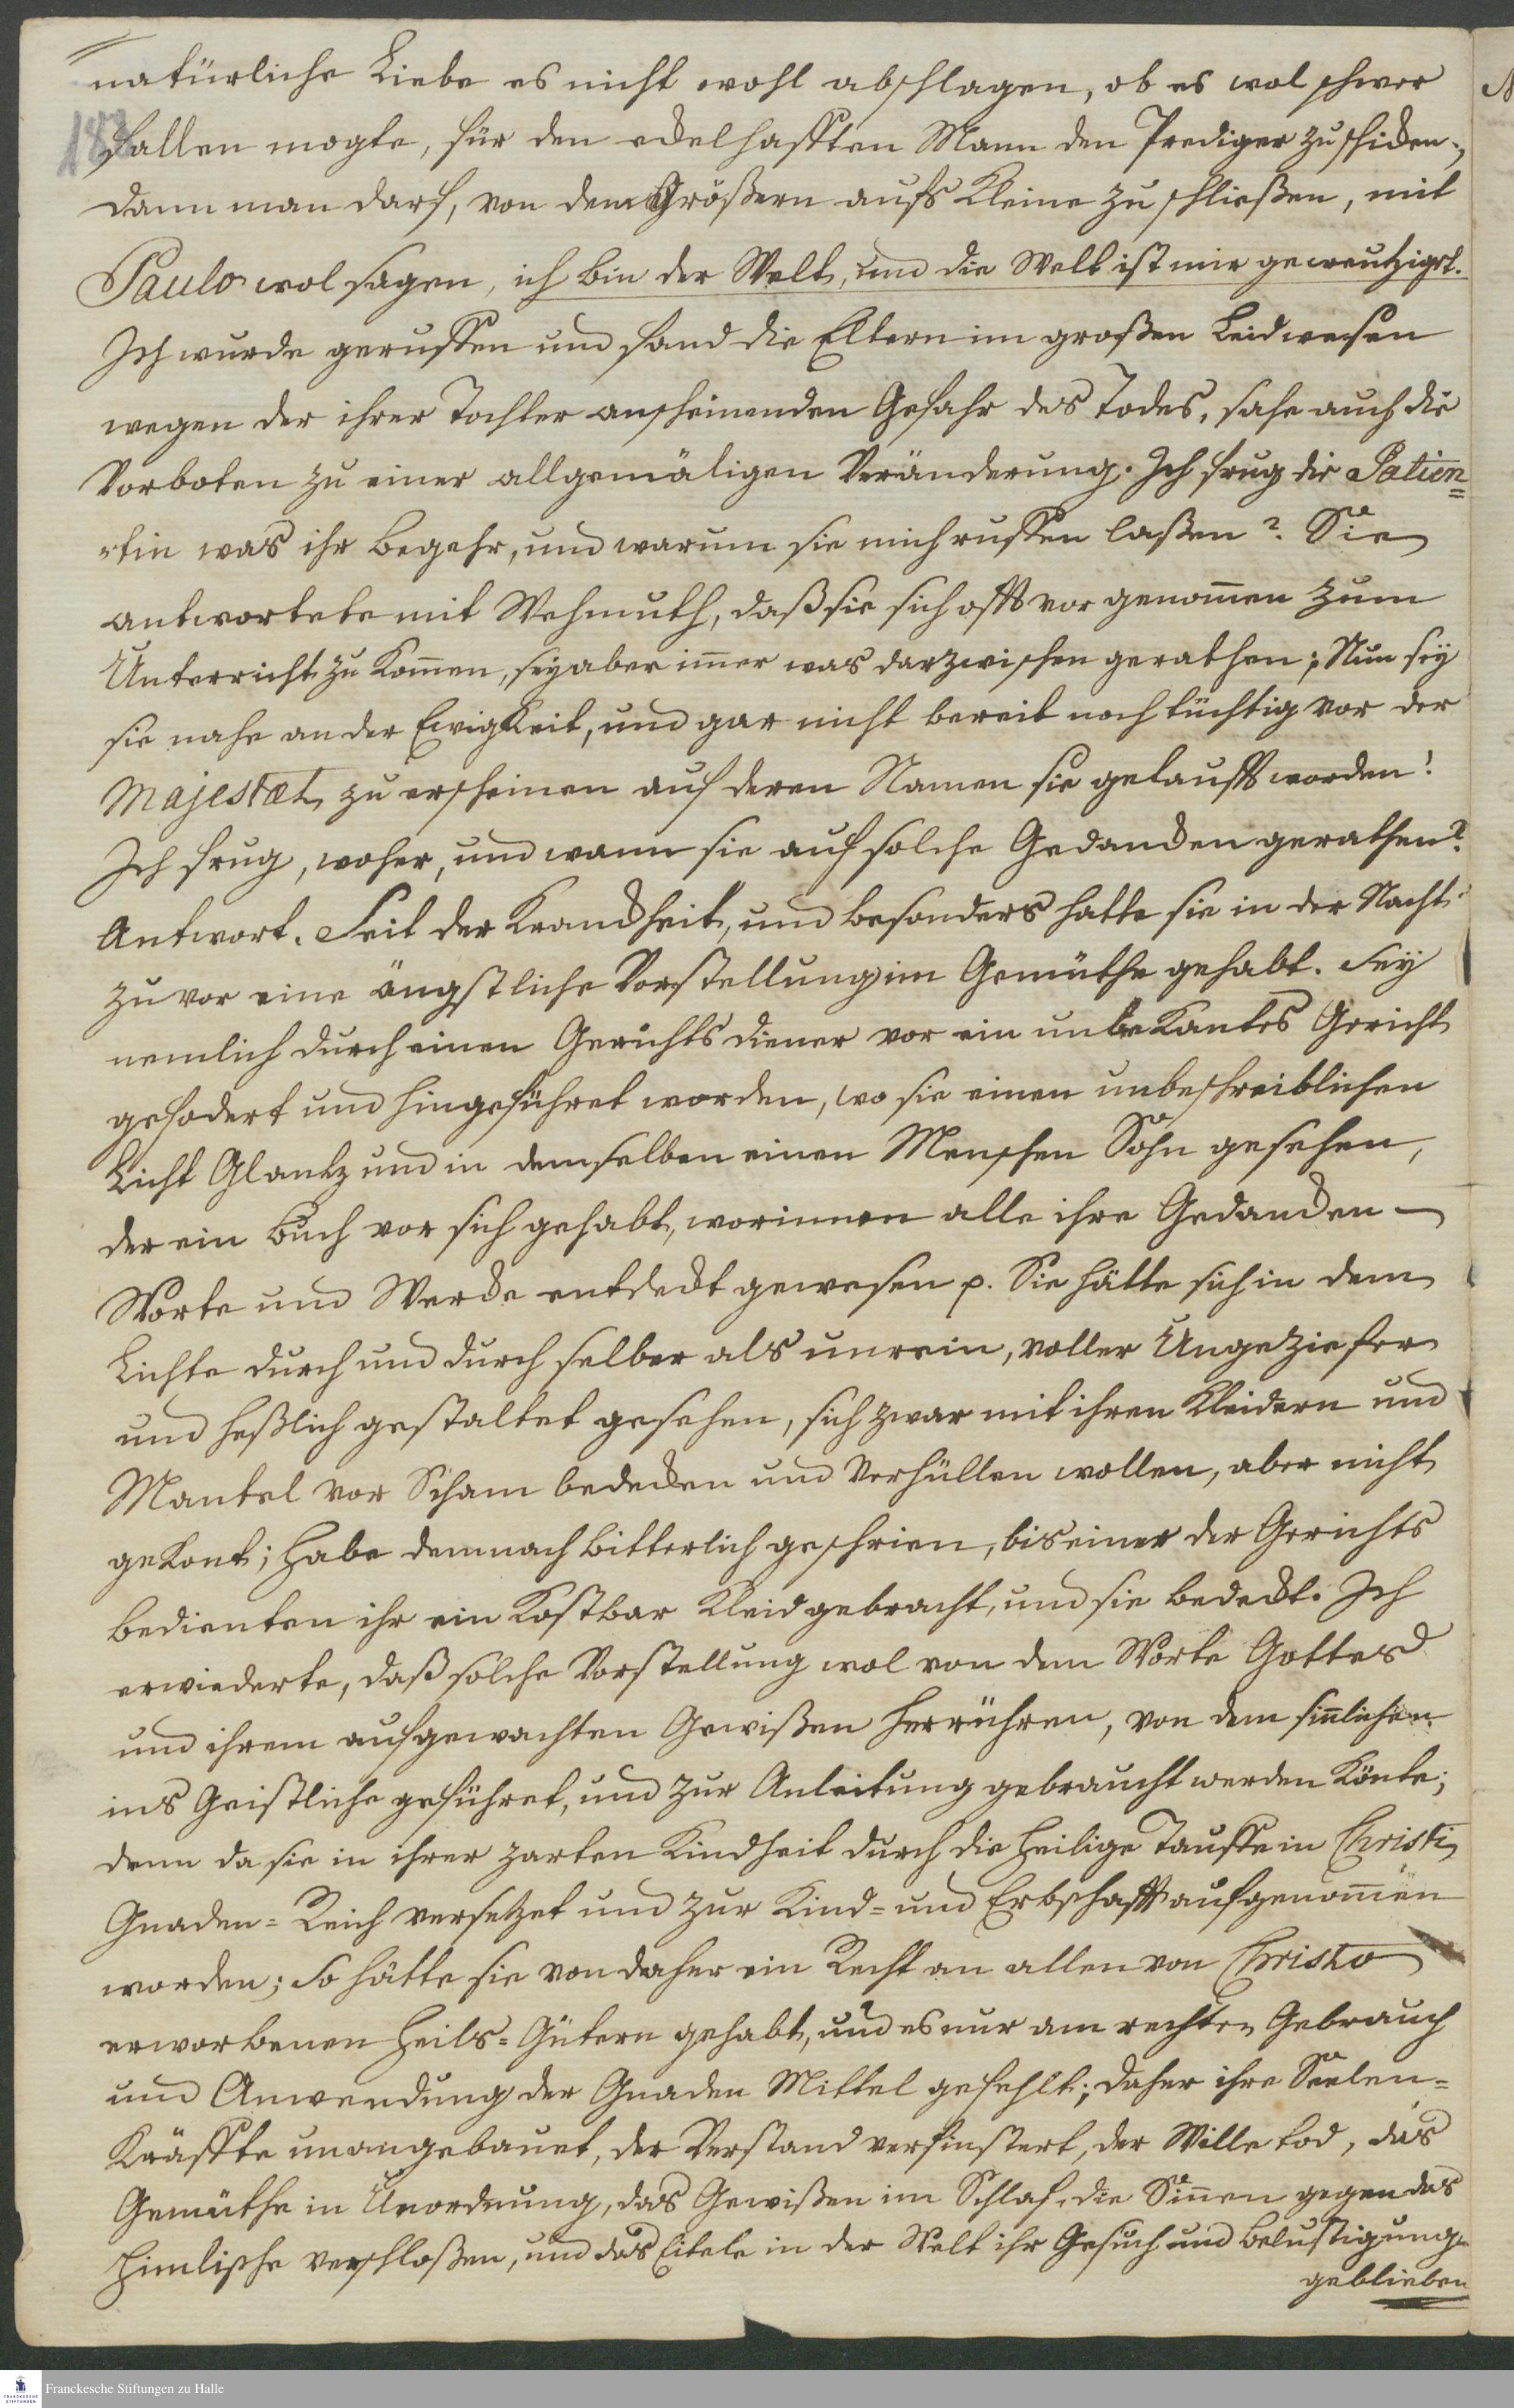 natürliche Liebe es nicht wohl abschlagen, ob es wol schwer
188
fallen mogte, für den edelhafften Mann den Prediger zu schicken;
dann man darf, von dem Größern aufs Kleine zu schließen, mit
Paulo wol sagen, ich bin der Welt, und die Welt ist mir gecreutziget.
Ich wurde geruffen und fand die Eltern im großen Leidwesen
wegen der ihrer Tochter anscheinenden Gefahr des Todes, sahe auch die
Vorboten zu einer allgemäligen Veränderung. Ich frug die Patien=
=tin was ihr Begehr, und warum sie mich ruffen laßen? Sie
antwortete mit Wehmuth, daß sie sich offt vorgenom̄en zum
Unterricht zu kom̄en, sey aber im̄er was darzwischen gerathen; Nun sey
sie nahe an der Ewigkeit, und gar nicht bereit noch tüchtig vor der
Majestæt zu erscheinen auf deren Namen sie getaufft worden!
Ich frug, woher, und wann sie auf solche Gedancken gerathen?
Antwort. Seit der Kranckheit, und besonders hätte sie in der Nacht
zuvor eine ängstliche Vorstellung im Gemüthe gehabt. Sey
nemlich durch einen Gerichts diener vor ein unbekantes Gericht
gefodert und hingeführet worden, wo sie einen unbeschreiblichen
Licht Glantz und in demselben einen Menschen Sohn gesehen,
der ein Buch vor sich gehabt, worinnen alle ihre Gedancken
Worte und Wercke entdeckt gewesen p. Sie hätte sich in dem
Lichte durch und durch selber als unrein, voller Ungeziefer
und heßlich gestaltet gesehen, sich zwar mit ihren Kleidern und
Mantel vor Scham bedecken und verhüllen wollen, aber nicht
gekont; habe demnach bitterlich geschrien, bis einer der Gerichts
bedienten ihr ein kostbar Kleid gebracht, und sie bedeckt. Ich
erwiederte, daß solche Vorstellung wol von dem Worte Gottes
und ihrem aufgewachten Gewißen herrühren, von dem sin̄lichen
ins Geistliche geführet, und zur Anleitung gebraucht werden könte;
denn da sie in ihrer zarten Kindheit durch die heilige Tauffe in Christi
Gnaden=Reich versetzet und zur Kind= und Erbschafft aufgenom̄en
worden; So hätte sie von daher ein Recht an allen von Christo
erworbenen Heils=Gütern gehabt, und es nur am rechten Gebrauch
und Anwendung der Gnaden Mittel gefehlt; daher ihre Seelen=
Kräffte unangebauet, der Verstand verfinstert, der Wille tod, das
Gemüthe in Unordnung, das Gewißen im Schlaf, die Sin̄en gegen das
Him̄lische verschloßen, und das Eitele in der Welt ihr Gesuch und Belustigung
geblieben
Franckesche Stiftungen zu Halle